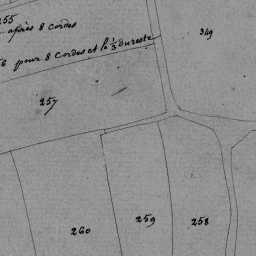 255
après 8 Cordes
349
6 pour 8 Cordes et le 1/3 du reste
257
260
259
258